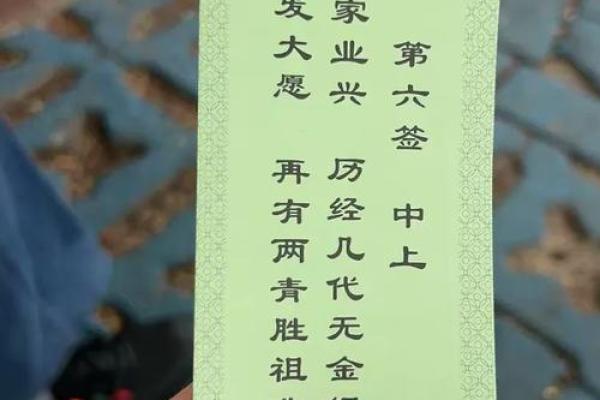 第六签 中上
家业兴 历经几代无金
发大愿 再有两青胜祖